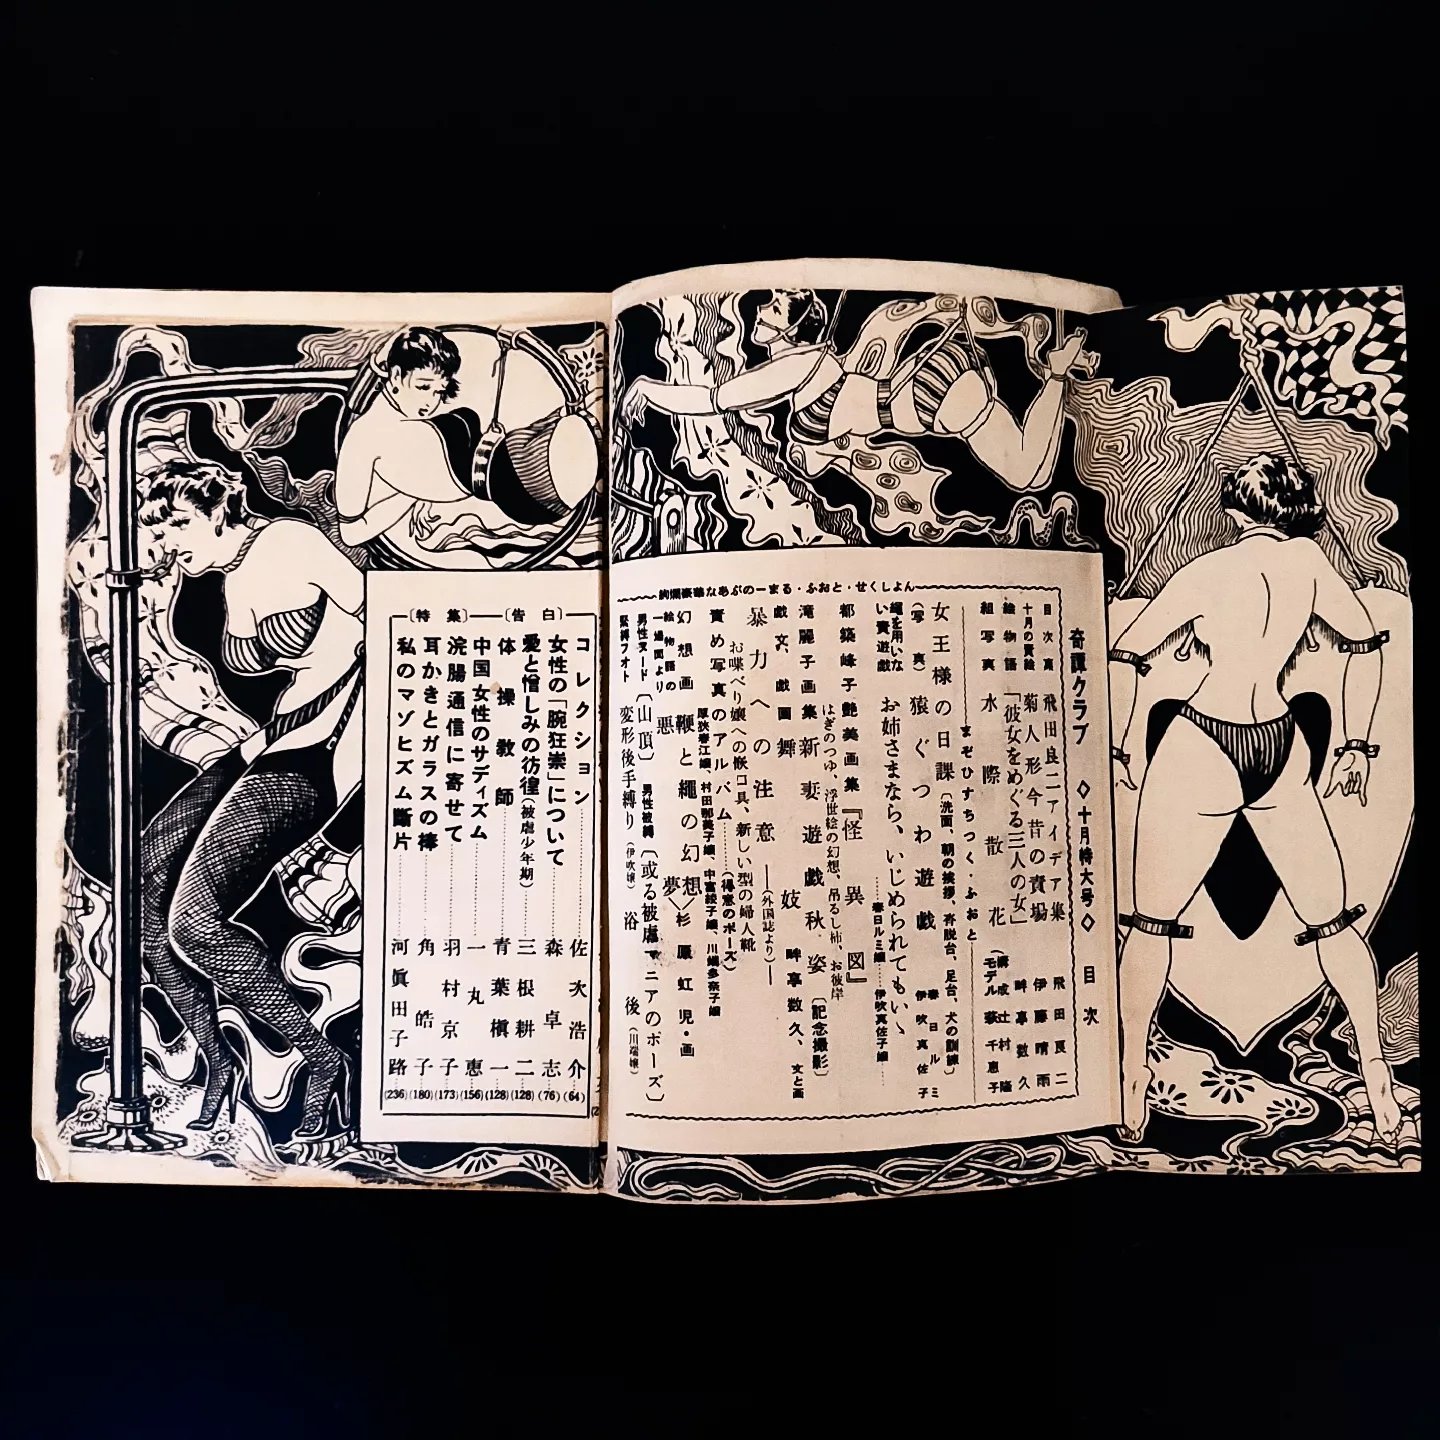 奇譚クラブ ◇十月特大号◇ 目次
目次扉 飛田良二アイデア集 飛田良二
十月の責絵 菊人形今昔の責場 伊藤晴雨
絵物語 「彼女をめぐる三人の女」 畔亭数久
組写真 水際散花
まぞひすちつく・ふおと
女王様の日課〔洗面、朝の挨拶、足台、犬の訓練〕
(写真) 猿ぐつわ遊戯 伊吹真佐子
春日ルミ
縄を用いない責遊戯
お姉さまなら、いじめられてもいゝ
春日ルミ嬢 伊吹真佐子嬢
都築峰子艶美画集『怪異図』
はぎのつゆ、浮世絵の幻想、吊るし柿、お彼岸
滝麗子画集 新妻遊戯秋姿 〔記念撮影〕
戯文、戯画 舞妓 畔亭数久、文と画
暴力への注意 (外国誌より)
お喋べり嬢への嵌口具、新しい型の婦人靴
責め写真のアルバム (得意のポーズ)
村田那美子嬢、中富絵子嬢、川端多奈子嬢
幻想画 鞭と縄の幻想 杉原虹児・画
悪夢
男性ヌード〔山頂〕
男性被縛〔或る被虐マニアのポーズ〕
緊縛フオト 変形後手縛り(伊吹嬢) 浴後(川端嬢)
絢爛豪華なあぶのーまる・ふおと・せくしよん
〔特集〕〔告白〕
コレクション 佐次浩介 (64)
女性の「腕狂崇」について 森卓志 (76)
愛と憎しみの彷徨(被虐少年期) 三根耕二 (128)
体操教師 青葉槇一 (128)
中国女性のサディズム 一丸恵 (156)
浣腸通信に寄せて 羽村京子 (173)
耳かきとガラスの棒 角皓子 (180)
私のマゾヒズム断片 河眞田子路 (236)